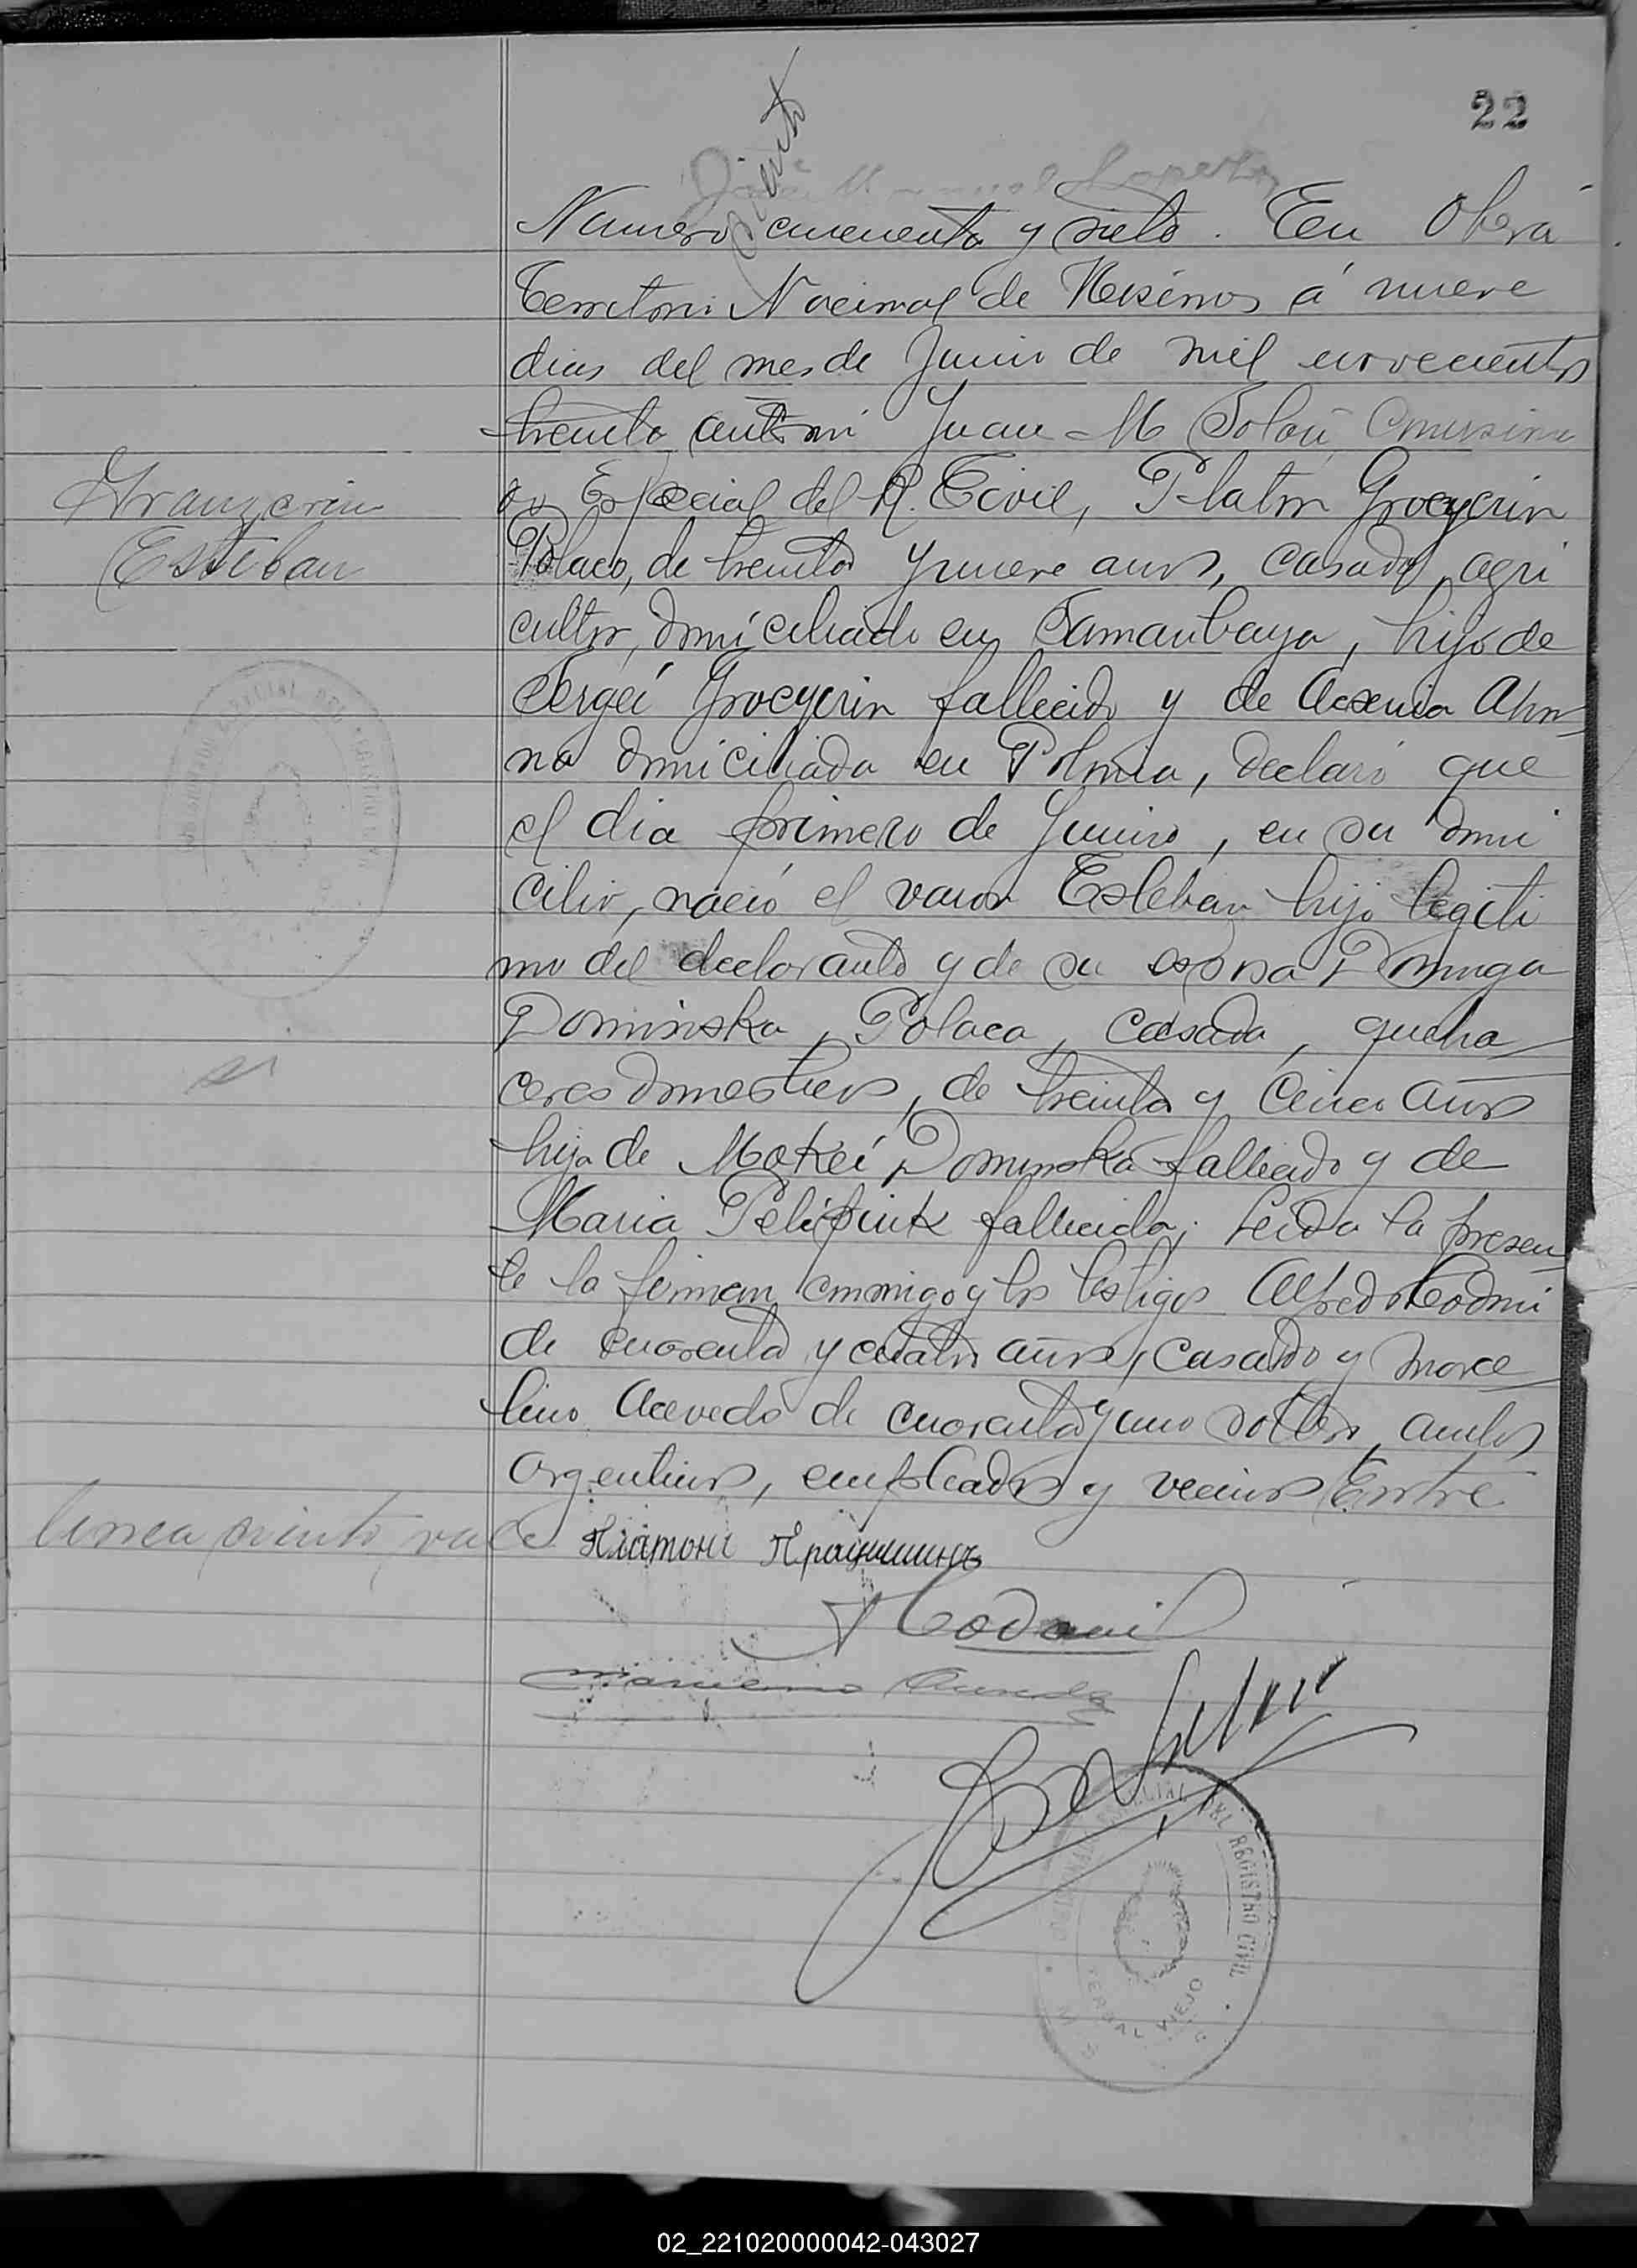 22
ciento
Numero cincuenta y siete. En Oberá
Territorio Nacional de Misiones á nueve
dias del mes de Junio de mil novecientos
treinta ante mi Juan M Solari, Comisiona
do Especial del R. Civil, Platon Grocyerin
Polaco, de treinta y nueve años, casado, agri
cultor, domiciliado en Samambaya, hijo de
Sergei Grocyerin fallecido y de Acsenia
na domiciliada en Polonia, declaró que
el dia primero de Junio, en su domi
cilio, nació el varon Esteban hijo legiti
mo del declarante y de su esposa Dominga
Dominska, Polaca, casada, queha
ceres domesticos, de treinta y cinco años
hija de Mokei Dominska fallecido y de
Maria Pelipiuk fallecida; Leida la presen
te la firman conmigo y los testigos Alfredo Codoni
de cuarenta y cuatro años, casado y Marce
lino Acevedo de cuarenta y uno soltero, ambos
Argentinos, empleados y vecinos Entre
linea ciento, vale
Granzerin
Esteban
Платонъ
Codoni
Marcelino Acevedo
ESPECIAL DEL REGISTRO CIVIL
YERBAL VIEJO
02_221020000042-043027